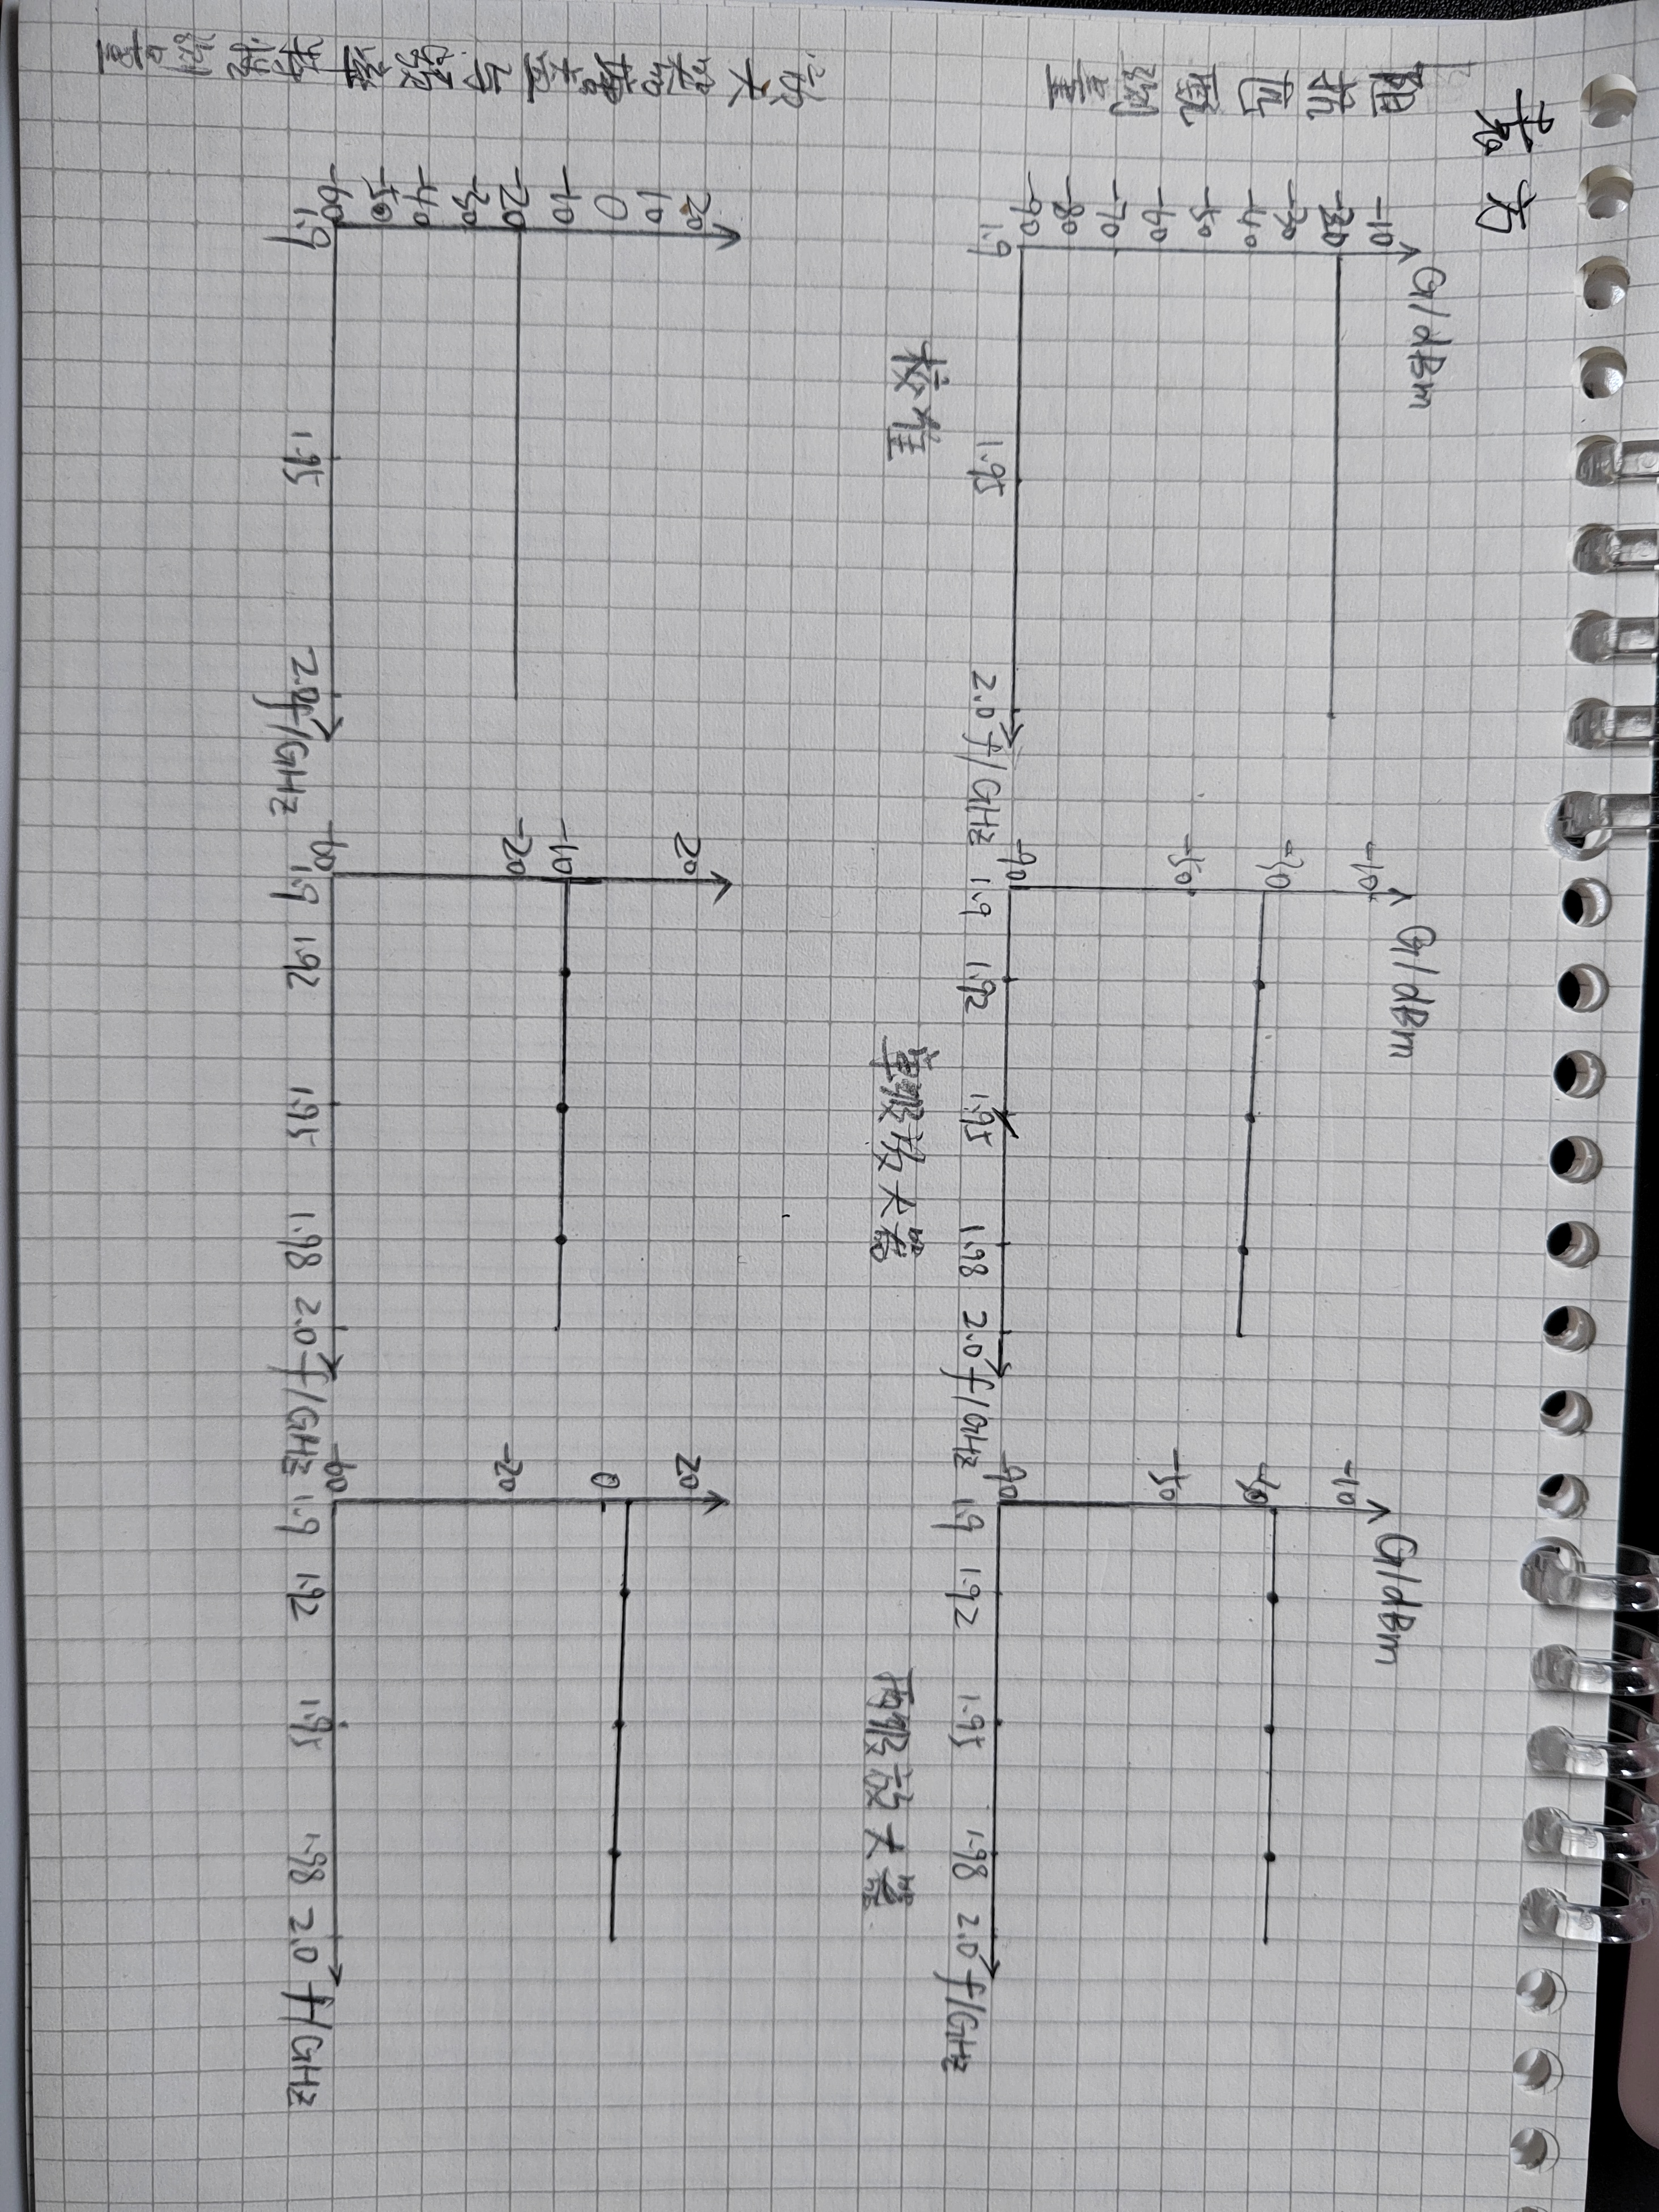 袁方
阻抗匹配测量
G/dBm
-10
-20
-30
-40
-50
-60
-70
-80
-90
1.9 1.95 2.0 f/GHz
校准
G/dBm
-10
-30
-50
-90
1.9 1.92 1.95 1.98 2.0 f/GHz
单级放大器
G/dBm
-10
-30
-50
-90
1.9 1.92 1.95 1.98 2.0 f/GHz
两级放大器
放大器增益与频率特性测量
20
10
0
-10
-20
-30
-40
-50
-60
1.9 1.95 2.0 f/GHz
20
-10
-20
-60
1.9 1.92 1.95 1.98 2.0 f/GHz
20
0
-20
-60
1.9 1.92 1.95 1.98 2.0 f/GHz